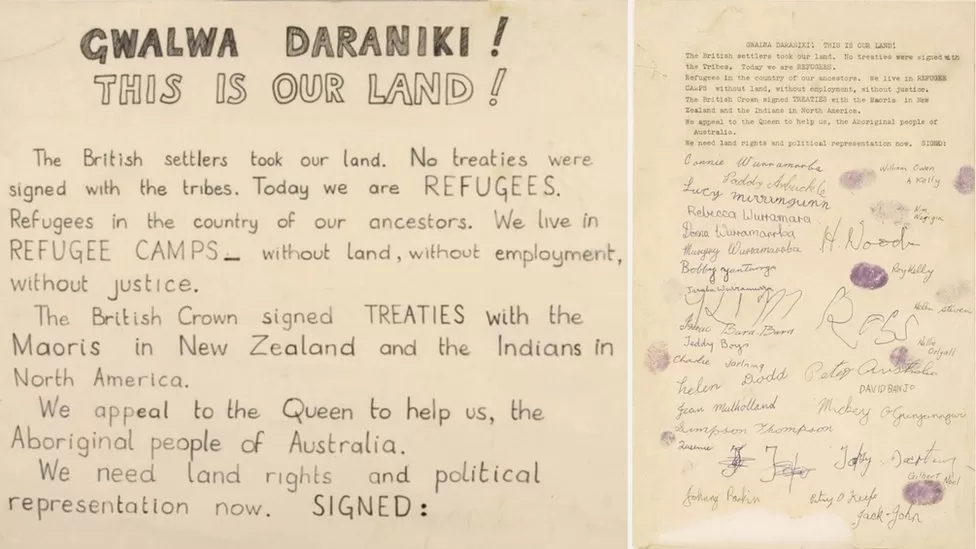 GWALWA DARANIKI!
THIS IS OUR LAND!
The British settlers took our land. No treaties were
signed with the tribes. Today we are REFUGEES.
Refugees in the country of our ancestors. We live in
REFUGEE CAMPS_ without land, without employment,
without justice.
The British Crown signed TREATIES with the
Maoris in New Zealand and the Indians in
North America.
We appeal to the Queen to help us, the
Aboriginal people of Australia.
We need land rights and political
representation now. SIGNED:
GWALWA DARANIKI! THIS IS OUR LAND!
The British settlers took our land. No treaties were signed with
the Tribes. Today we are REFUGEES.
Refugees in the country of our ancestors. We live in REFUGEE
CAMPS without land, without employment, without justice.
The British Crown signed TREATIES with the Maoris in New
Zealand and the Indians in North America.
We appeal to the Queen to help us, the Aboriginal people of
Australia.
We need land rights and political representation now. SIGNED:
Connie Wurramarba
William Owen
Paddy Arbuckle
A Kelly
Lucy
Rebecca Wurramara
Wurramarrba
H. Wood
Wurramarrba
Bobby
Roy Kelly
Helen Steven
Bara Bara
Ross
Teddy Boys
Nellie
Charlie
Peter Australia
Helen Dodd
DAVID BANJO
Jean Mulholland
Mickey
Simpson Thompson
Gilbert Noel
Johnny Rankin
O Keefe
Jack-John